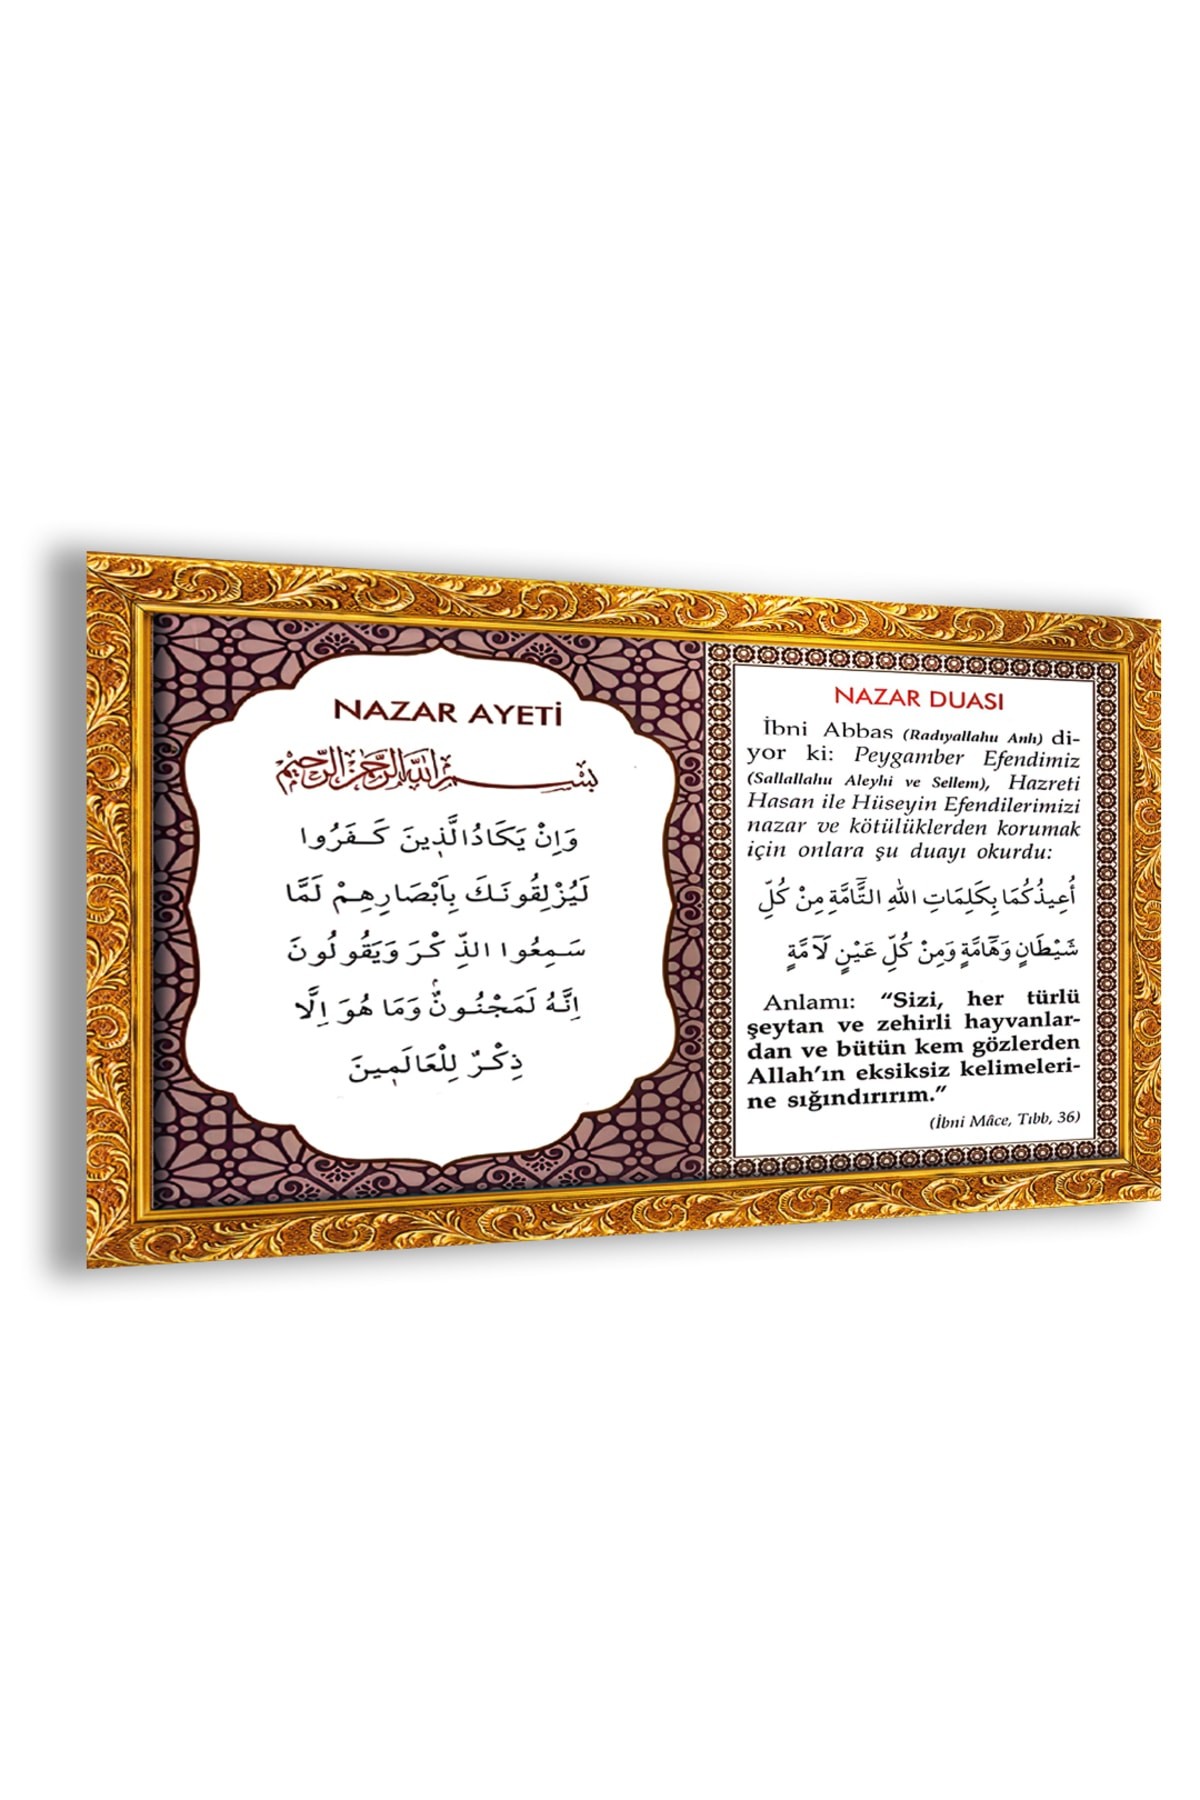 NAZAR AYETİ
بِسْمِ اللهِ الرَّحْمٰنِ الرَّحِيمِ
وَاِنْ يَكَادُ الَّذ۪ينَ كَفَرُوا
لَيُزْلِقُونَكَ بِاَبْصَارِهِمْ لَمَّا
سَمِعُوا الذِّكْرَ وَيَقُولُونَ
اِنَّهُ لَمَجْنُونٌۢ وَمَا هُوَ اِلَّا
ذِكْرٌ لِلْعَالَم۪ينَ
NAZAR DUASI
İbni Abbas (Radıyallahu Anh) di-
yor ki: Peygamber Efendimiz
(Sallallahu Aleyhi ve Sellem), Hazreti
Hasan ile Hüseyin Efendilerimizi
nazar ve kötülüklerden korumak
için onlara şu duayı okurdu:
أُعِيذُكُمَا بِكَلِمَاتِ اللهِ التَّآمَّةِ مِنْ كُلِّ
شَيْطَانٍ وَهَآمَّةٍ وَمِنْ كُلِّ عَيْنٍ لَآمَّةٍ
Anlamı: “Sizi, her türlü
şeytan ve zehirli hayvanlar-
dan ve bütün kem gözlerden
Allah’ın eksiksiz kelimeleri-
ne sığındırırım.”
(İbni Mâce, Tıbb, 36)